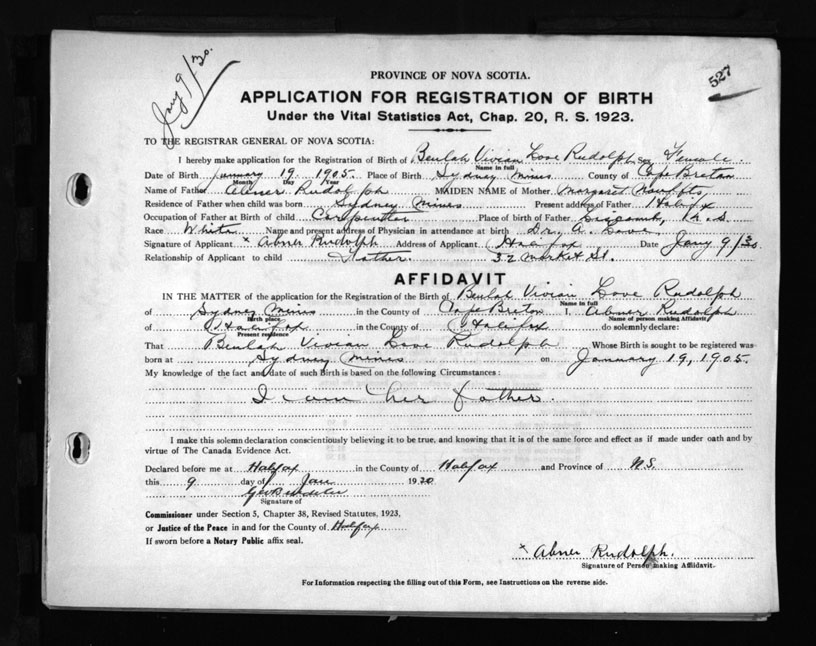 Jany 9/30.
527
PROVINCE OF NOVA SCOTIA.
APPLICATION FOR REGISTRATION OF BIRTH
Under the Vital Statistics Act, Chap. 20, R. S. 1923.
TO THE REGISTRAR GENERAL OF NOVA SCOTIA:
I hereby make application for the Registration of Birth of Beulah Vivian Love Rudolph Sex Female
Name in full
Date of Birth January 19 1905 Place of Birth Sydney Mines County of Cape Breton
Month Day Year
Name of Father Abner Rudolph MAIDEN NAME of Mother Margaret
Name in full
Residence of Father when child was born Sydney Mines Present address of Father Halifax
Occupation of Father at Birth of child Carpenter Place of birth of Father Liscomb, N.S.
Race Name and present address of Physician in attendance at birth Dr. A.
Signature of Applicant x Abner Rudolph Address of Applicant Halifax Date Jany 9/30
Relationship of Applicant to child Father. 32 Market St.
AFFIDAVIT
IN THE MATTER of the application for the Registration of the Birth of Beulah Vivian Love Rudolph
Name in full
of Sydney Mines in the County of Cape Breton I, Abner Rudolph
Birth place Name of person making Affidavit
of Halifax in the County of Halifax do solemnly declare:
Present residence
That Beulah Vivian Love Rudolph Whose Birth is sought to be registered was
born at Sydney Mines on January 19, 1905.
My knowledge of the fact and date of such Birth is based on the following Circumstances:
I am her father.
I make this solemn declaration conscientiously believing it to be true, and knowing that it is of the same force and effect as if made under oath and by
virtue of The Canada Evidence Act.
Declared before me at Halifax in the County of Halifax and Province of N.S.
this 9 day of Jan 1930
Signature of
Commissioner under Section 5, Chapter 38, Revised Statutes, 1923,
or Justice of the Peace in and for the County of Halifax
If sworn before a Notary Public affix seal.
x Abner Rudolph.
Signature of Person making Affidavit.
For Information respecting the filling out of this Form, see Instructions on the reverse side.